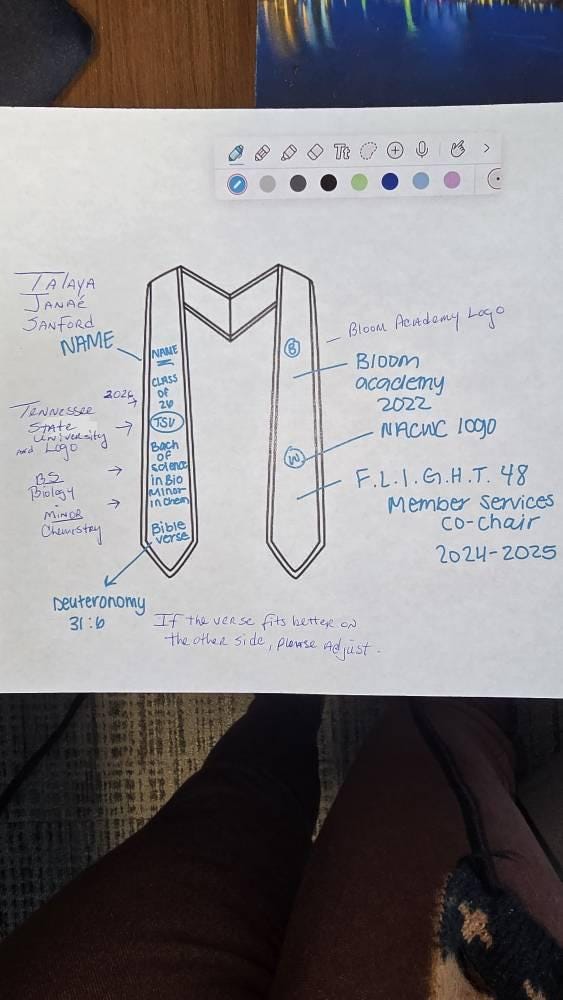 Tt
TALAYA
JANAÉ
SANFORD
NAME
2026
TENNESSEE
STATE
University
and Logo
BS
Biology
MINOR
Chemistry
NAME
CLASS
OF
26
TSU
Bach
of
science
in Bio
Minor
in chem
Bible
verse
Deuteronomy
31:6
B
Bloom Academy Logo
Bloom
academy
2022
NACWC logo
F.L.I.G.H.T. 48
Member Services
co-chair
2024-2025
If the verse fits better on
the other side, please Adjust.